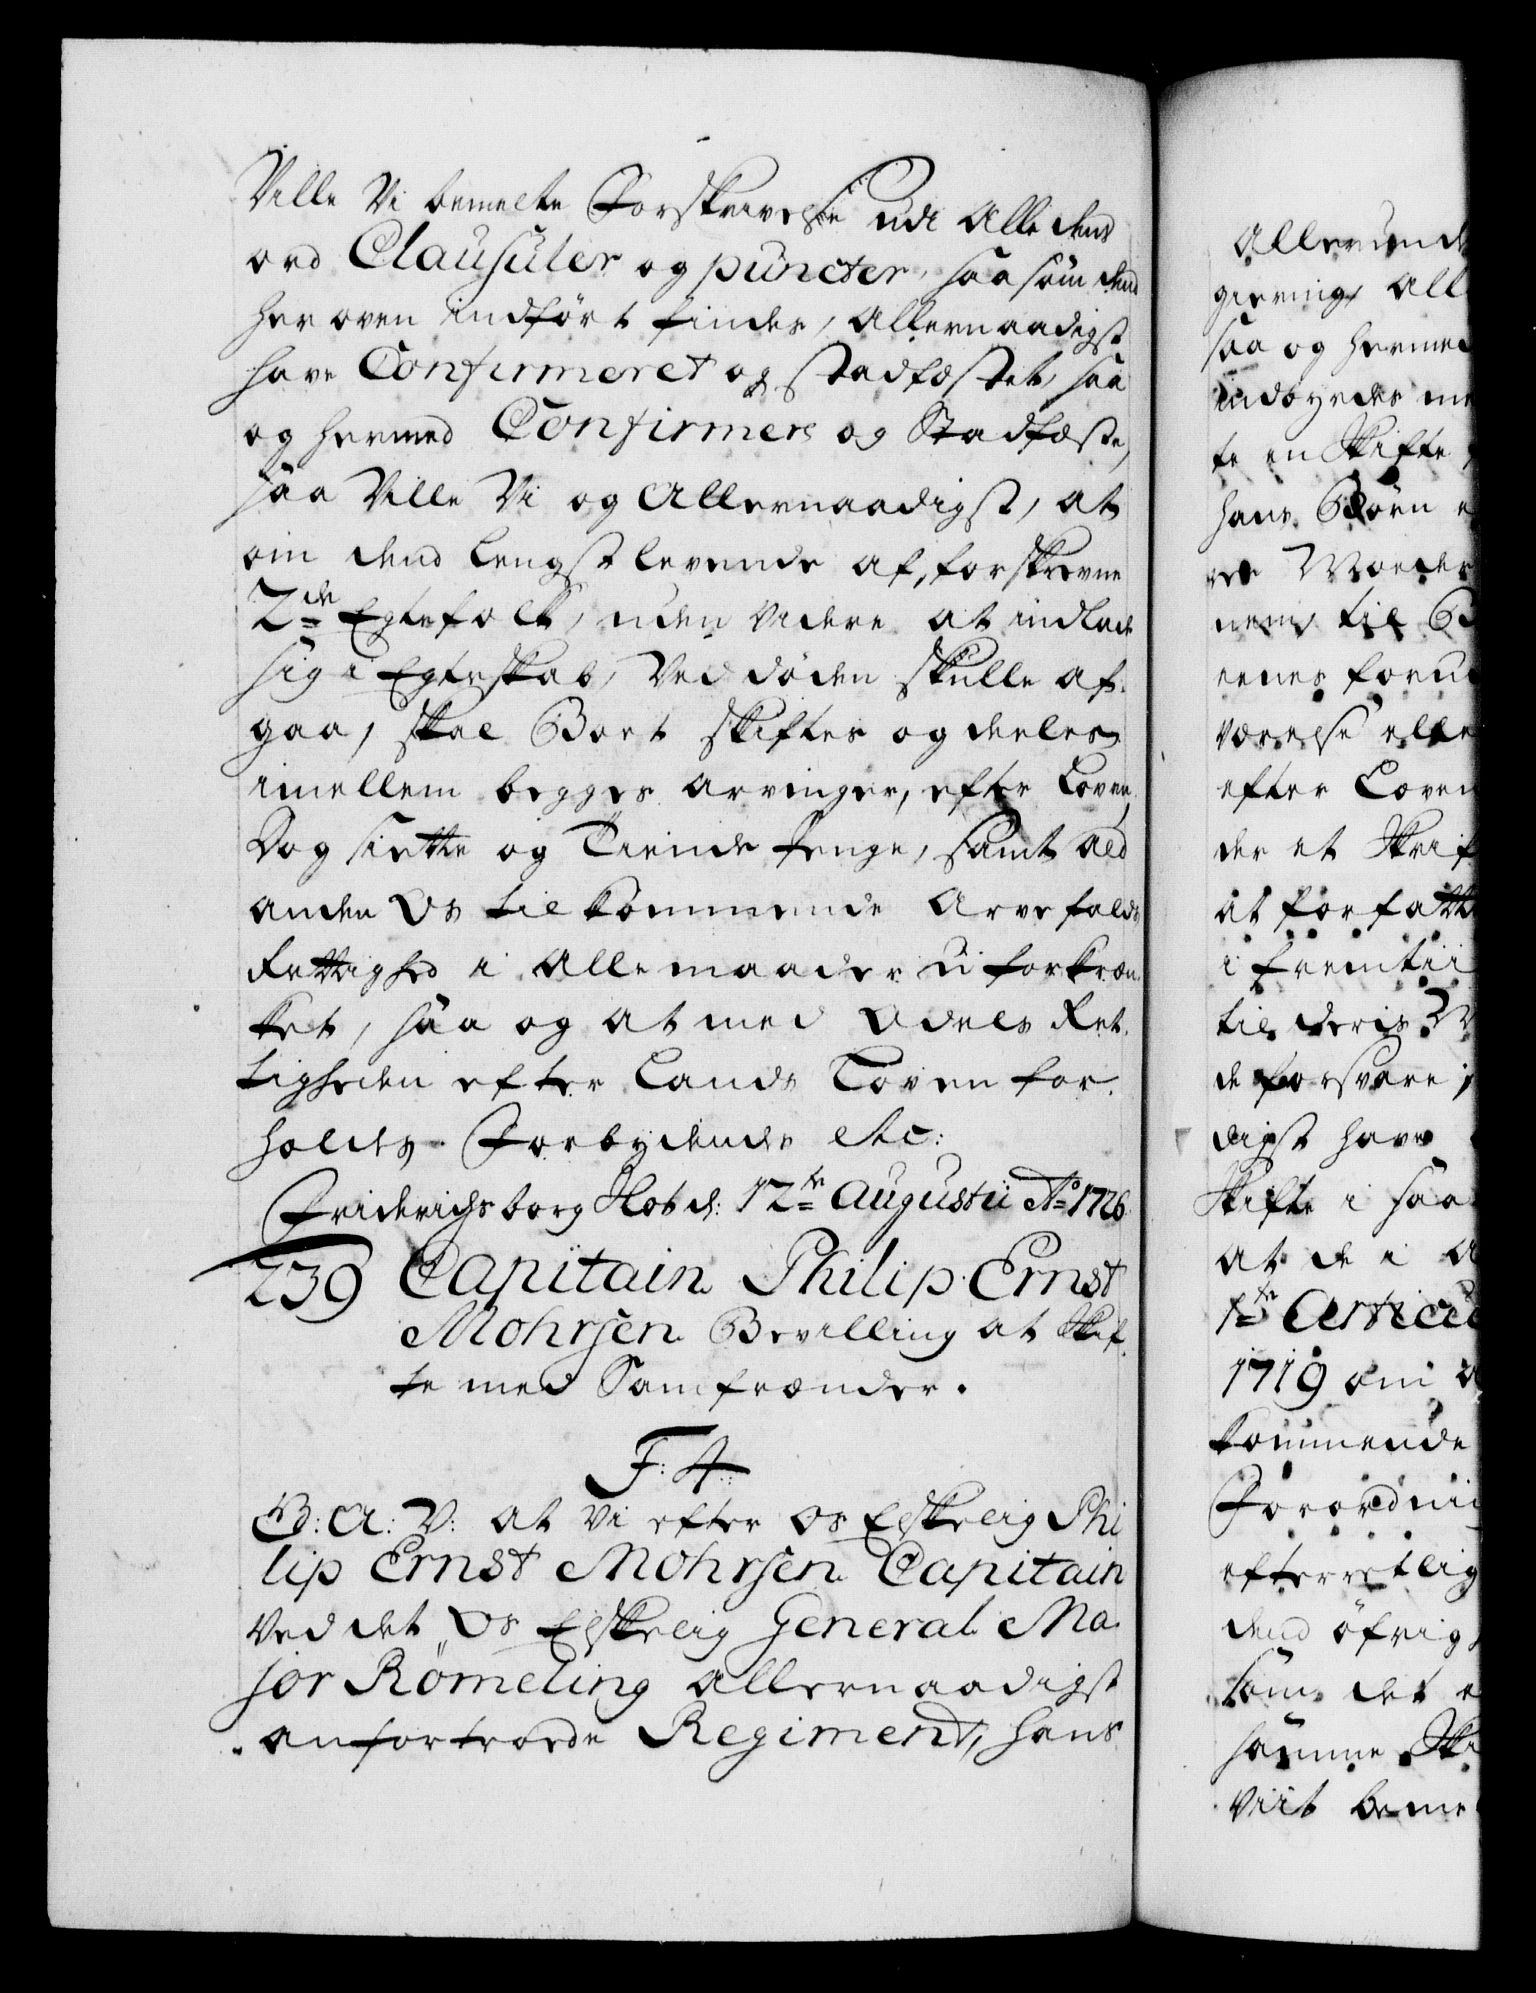 Ville Vi bemelte Forskrivelse udi Alle dens
ord Clausuler og puncter, saasom dend
her oven indført findes, Allernaadigst
have Confirmeret og stadfæstet, saa
og hermed Confirmere og Stadfæste,
saa Ville Vi og Allernaadigst, at
om dend lengst levende af forskrevne
2de Egtefolk, uden videre at indlade
sig i Egteskab, Ved døden skulle af-
gaa, skal Boet skiftes og deeles
imellem begges arvinger, efter Loven,
Dog siette og Tiende Penge, samt ald
anden Os tilkommende Arvefalds
Rettighed i Alle maader uforkræn-
ket, saa og at med Odels Ret-
tigheden efter Lands Loven for-
holdes. Forbydendes etc:
Friderichsborg Slot d: 12te Augustii Ao 1726.
239 Capitain Philip Ernst
Mohrsen Bevilling at Skif-
te med Samfrænder.
F: 4
G: A: V: at Vi efter Os Elskelig Phi
lip Ernst Mohrsen Capitain
Ved det Os Elskelig General Ma-
jor Römeling allernaadigst
anfortroede Regiment, hans
Allerund
giering, All
saa og hermed
indbyrdes me
te en Skifte
hans Børn
Moeder
nem til B
eenes foru
værelse elle
efter Loven
der et Skrif
at forfatte
i fremtii
til deris M
de forsvare
digst have
Skifte i saa
at de i A
1te Articul
1719 om
kommende
Forordni
efterretlig
dend öfrig
som det
samme Ski
viit beme